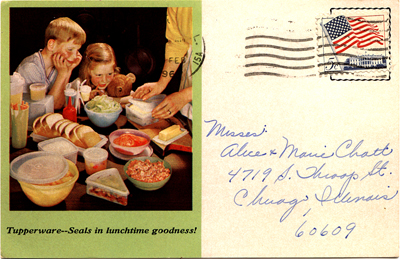 Tupperware--Seals in lunchtime goodness!
FEB
5¢
Misses:
Alice & Marie Chott
4719 S. Throop St.
Chicago Illinois
60609